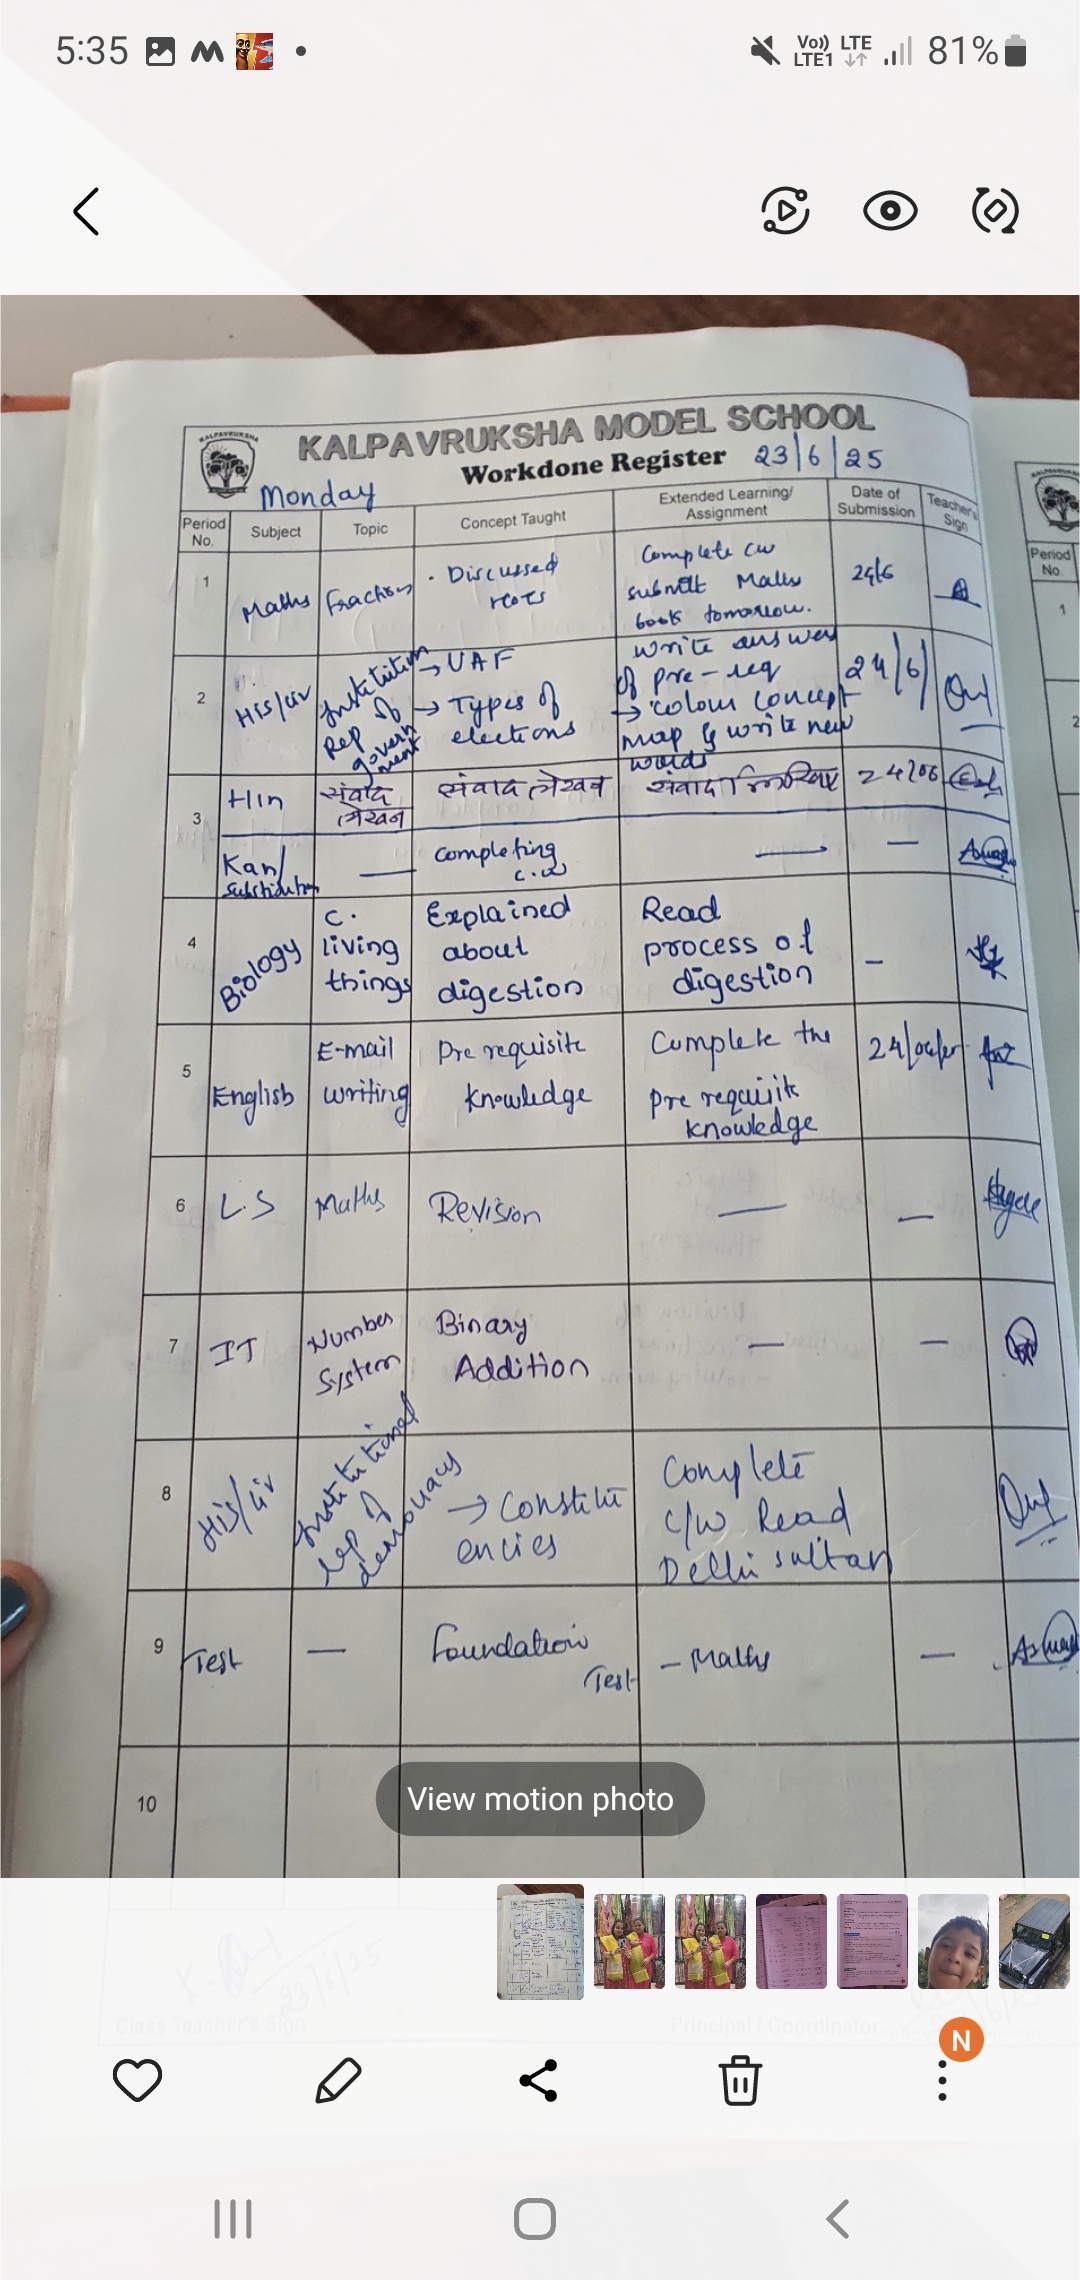 5:35
Vo)) LTE
LTE1
81%
KALPAVRUKSHA
KALPAVRUKSHA MODEL SCHOOL
Workdone Register 23/6/25
Monday
Period No.
Subject
Topic
Concept Taught
Extended Learning/ Assignment
Date of Submission
Teacher's Sign
Period No.
1
Maths
Fraction
. Discussed
Complete cw
submit Maths
book tomorrow.
24/6
1
2
His/civ
Institution
Rep of
government
→ UAF
→ Types of
elections
write answer
of pre-req
→ colour concept
map & write new
words
24/6/
2
3
Hin
संवाद
लेखन
संवाद लेखन
संवाद
24/06
Kan/
Substitution
—
Completing
c.w
—
—
4
Biology
C.
living
things
Explained
about
digestion
Read
process of
digestion
–
5
English
E-mail
writing
Pre requisite
knowledge
Complete the
pre requisite
knowledge
6
L.S
Maths
Revision
—
—
7
IT
Number
System
Binary
Addition
—
—
8
His/civ
Institutional
rep of
→ Constitu
encies
Complete
c/w Read
Delhi sultan
9
Test
—
Foundation
Test
– Maths
—
10
View motion photo
23/6/25
Class Teacher's Sign
Principal / Coordinator
N